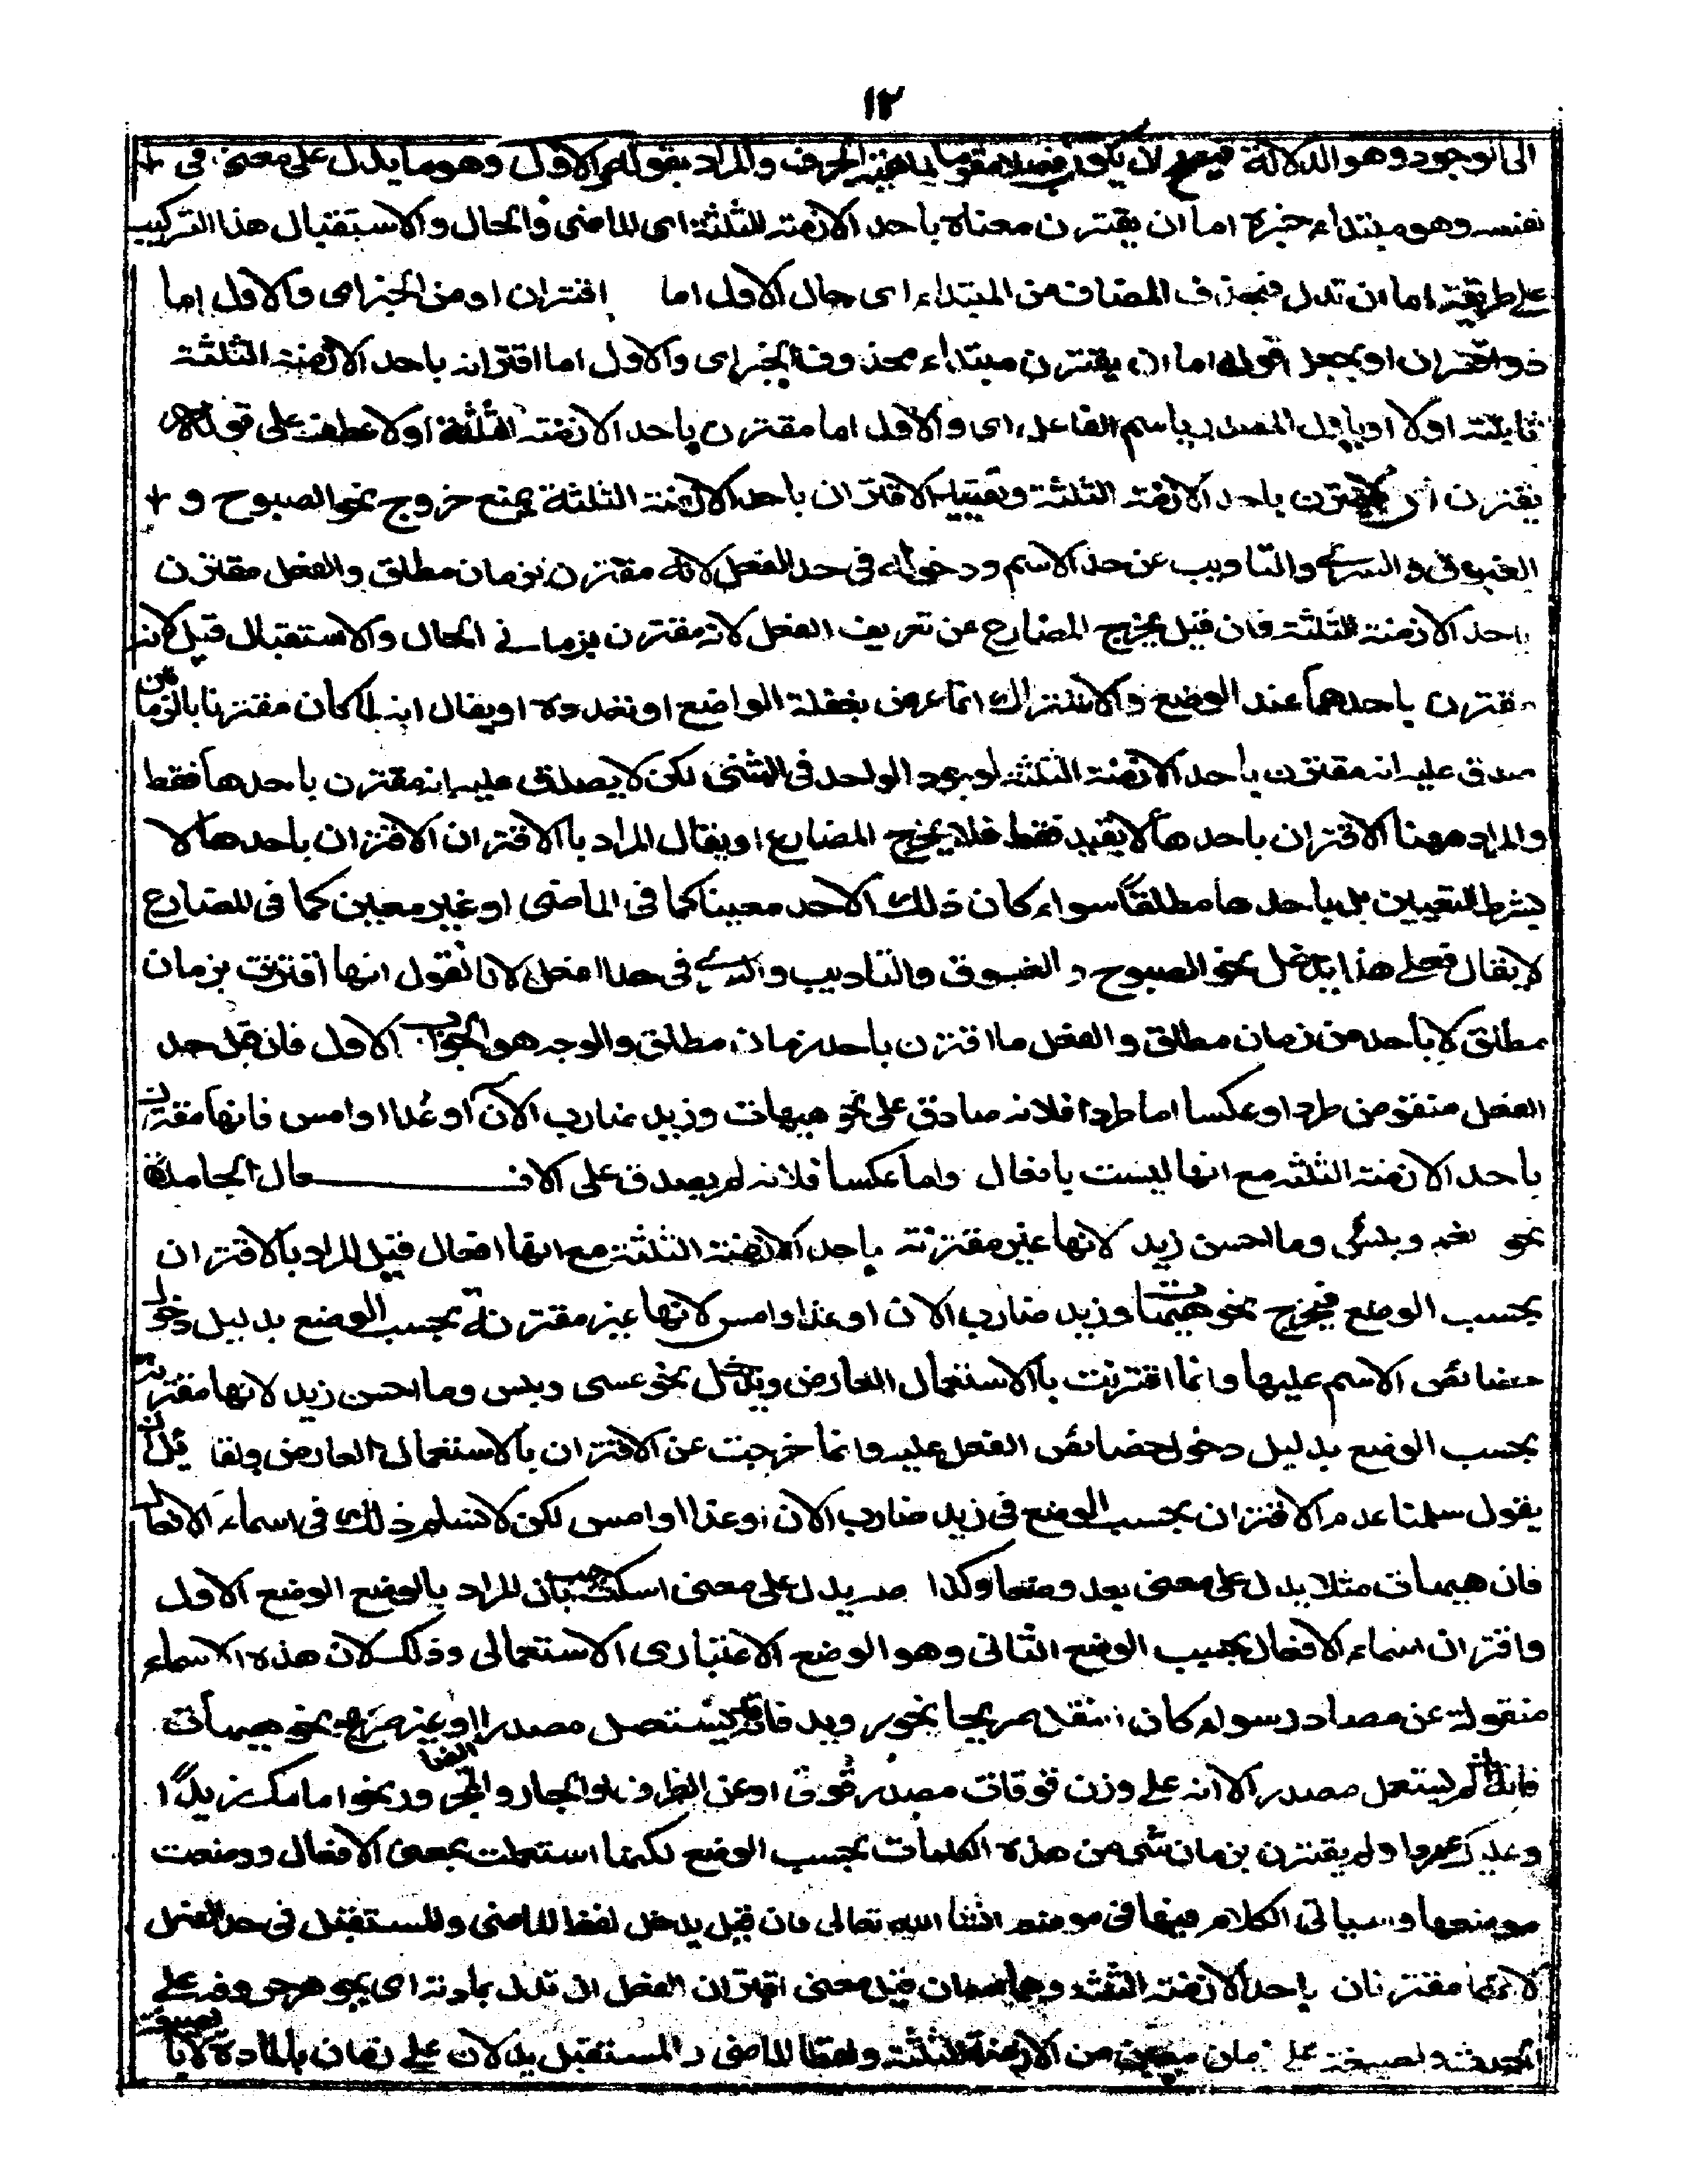 ١٢
الى الوجود وهو الدلالة فيصح لان يكون فصلا مقوما لماهية الحرف والمراد بقوله والاول وهو ما يدل على معنى فى +
نفسه وهو مبتداء خبره اما ان يقترن معناه باحد الازمنة الثلثة اى الماضى والحال والاستقبال هذا التركيب
على طريقة اما ان تدل فبحذف المضاف من المبتداء اى حال الاول اما اقتران او من الخبر اى والاول اما
ذو اقتران او يجعل قوله اما ان يقترن مبتداء محذوف الخبر اى والاول اما اقترانه باحد الازمنة الثلثة
ثابتة اولا او ياول المصدر باسم الفاعل اى والاول اما مقترن باحد الازمنة الثلثة اولا عطف على قوله
يقترن اى لا يقترن باحد الازمنة الثلثة وتقييد الاقتران باحد الازمنة الثلثة يمنع خروج نحو الصبوح و +
الغبوق و السرى والتاويب عن حد الاسم ودخوله فى حد الفعل لانه مقترن بزمان مطلق والفعل مقترن
باحد الازمنة الثلثة فان قيل يخرج المضارع عن تعريف الفعل لانه مقترن بزمانى الحال والاستقبال قيل لانه
مقترن باحدهما عند الوضع والاشتراك انما عرض بغفلة الواضع او تعدده او يقال انه لما كان مقترنا بالزمان
صدق عليه انه مقترن باحد الازمنة الثلثة لوجود الواحد فى المثنى لكن لا يصدق عليه انه مقترن باحدها فقط
والمراد ههنا الاقتران باحدها لا بقيد فقط فلا يخرج المضارع او يقال المراد با الاقتران الاقتران باحدها لا
بشرط التعيين بل باحدها مطلقاً سواء كان ذلك الاحد معينا كما فى الماضى او غير معين كما فى المضارع
لا يقال فعلى هذا يدخل نحو الصبوح و الغبوق والتاديب والسرى فى حد الفعل لانا نقول انها اقترنت بزمان
مطلق لا باحد من زمان مطلق و الفعل ما اقترن باحد زمان مطلق والوجه هو الجواب الاول فان قيل حد
الفعل منقوض طردا وعكسا اما طردا فلانه صادق على نحو هيهات وزيد ضارب الآن او غدا او امس فانها مقترن
باحد الازمنة الثلثة مع انها ليست بافعال واما عكسا فلانه لم يصدق على الافـــعال الجامدة
نحو نعم وبئس وما احسن زيد لانها غير مقترنة باحد الازمنة الثلثة مع انها افعال قيل المراد بالاقتران
بحسب الوضع فيخرج نحو هيهات وزيد ضارب الان او غدا وامس لانها غير مقترنة بحسب الوضع بدليل دخول
خصائص الاسم عليها وانما اقترنت با الاستعمال العارض ويدخل نحو عسى وبئس وما احسن زيد لانها مقترنة
بحسب الوضع بدليل دخول خصائص الفعل عليه وانما خرجت عن الاقتران بالاستعمال العارض ولقائل ان
يقول سلمنا عدم الاقتران بحسب الوضع فى زيد ضارب الان او غدا او امس لكن لا نسلم ذلك فى اسماء الافعال
فان هيهات مثلا يدل على معنى بعد وضعا وكذا صه يدل على معنى اسكت بان المراد بالوضع الوضع الاول
واقتران اسماء الافعال بحسب الوضع الثانى وهو الوضع الاعتبارى الاستعمالى وذلك لان هذه الاسماء
منقولة عن مصادر سواء كان النقل صريحا نحو رويد فانه يستعمل مصدرا او غير صريح نحو هيهات
فانه لم يستعمل مصدر الا انه على وزن قوقات مصدر قوق او عن الظرف او الجار والمجرور نحو امامك زيدًا
وعليك عمروا ولم يقترن بزمان شئ من هذه الكلمات بحسب الوضع لكنها استعملت بمعنى الافعال ووضعت
موضعها وسياتى الكلام فيها فى موضعه انشا الله تعالى فان قيل يدخل لفظ الماضى والمستقبل فى حد الفعل
لانهما مقترنان باحد الازمنة الثلثة وهما اسمان قيل معنى اقتران الفعل ان تدل بمادته اى بجوهر حروفه على
الحدث وبصيغته على زمان معين من الازمنة الثلثة ولفظا الماضى والمستقبل يدلان على زمان بالمادة لا بالصيغة